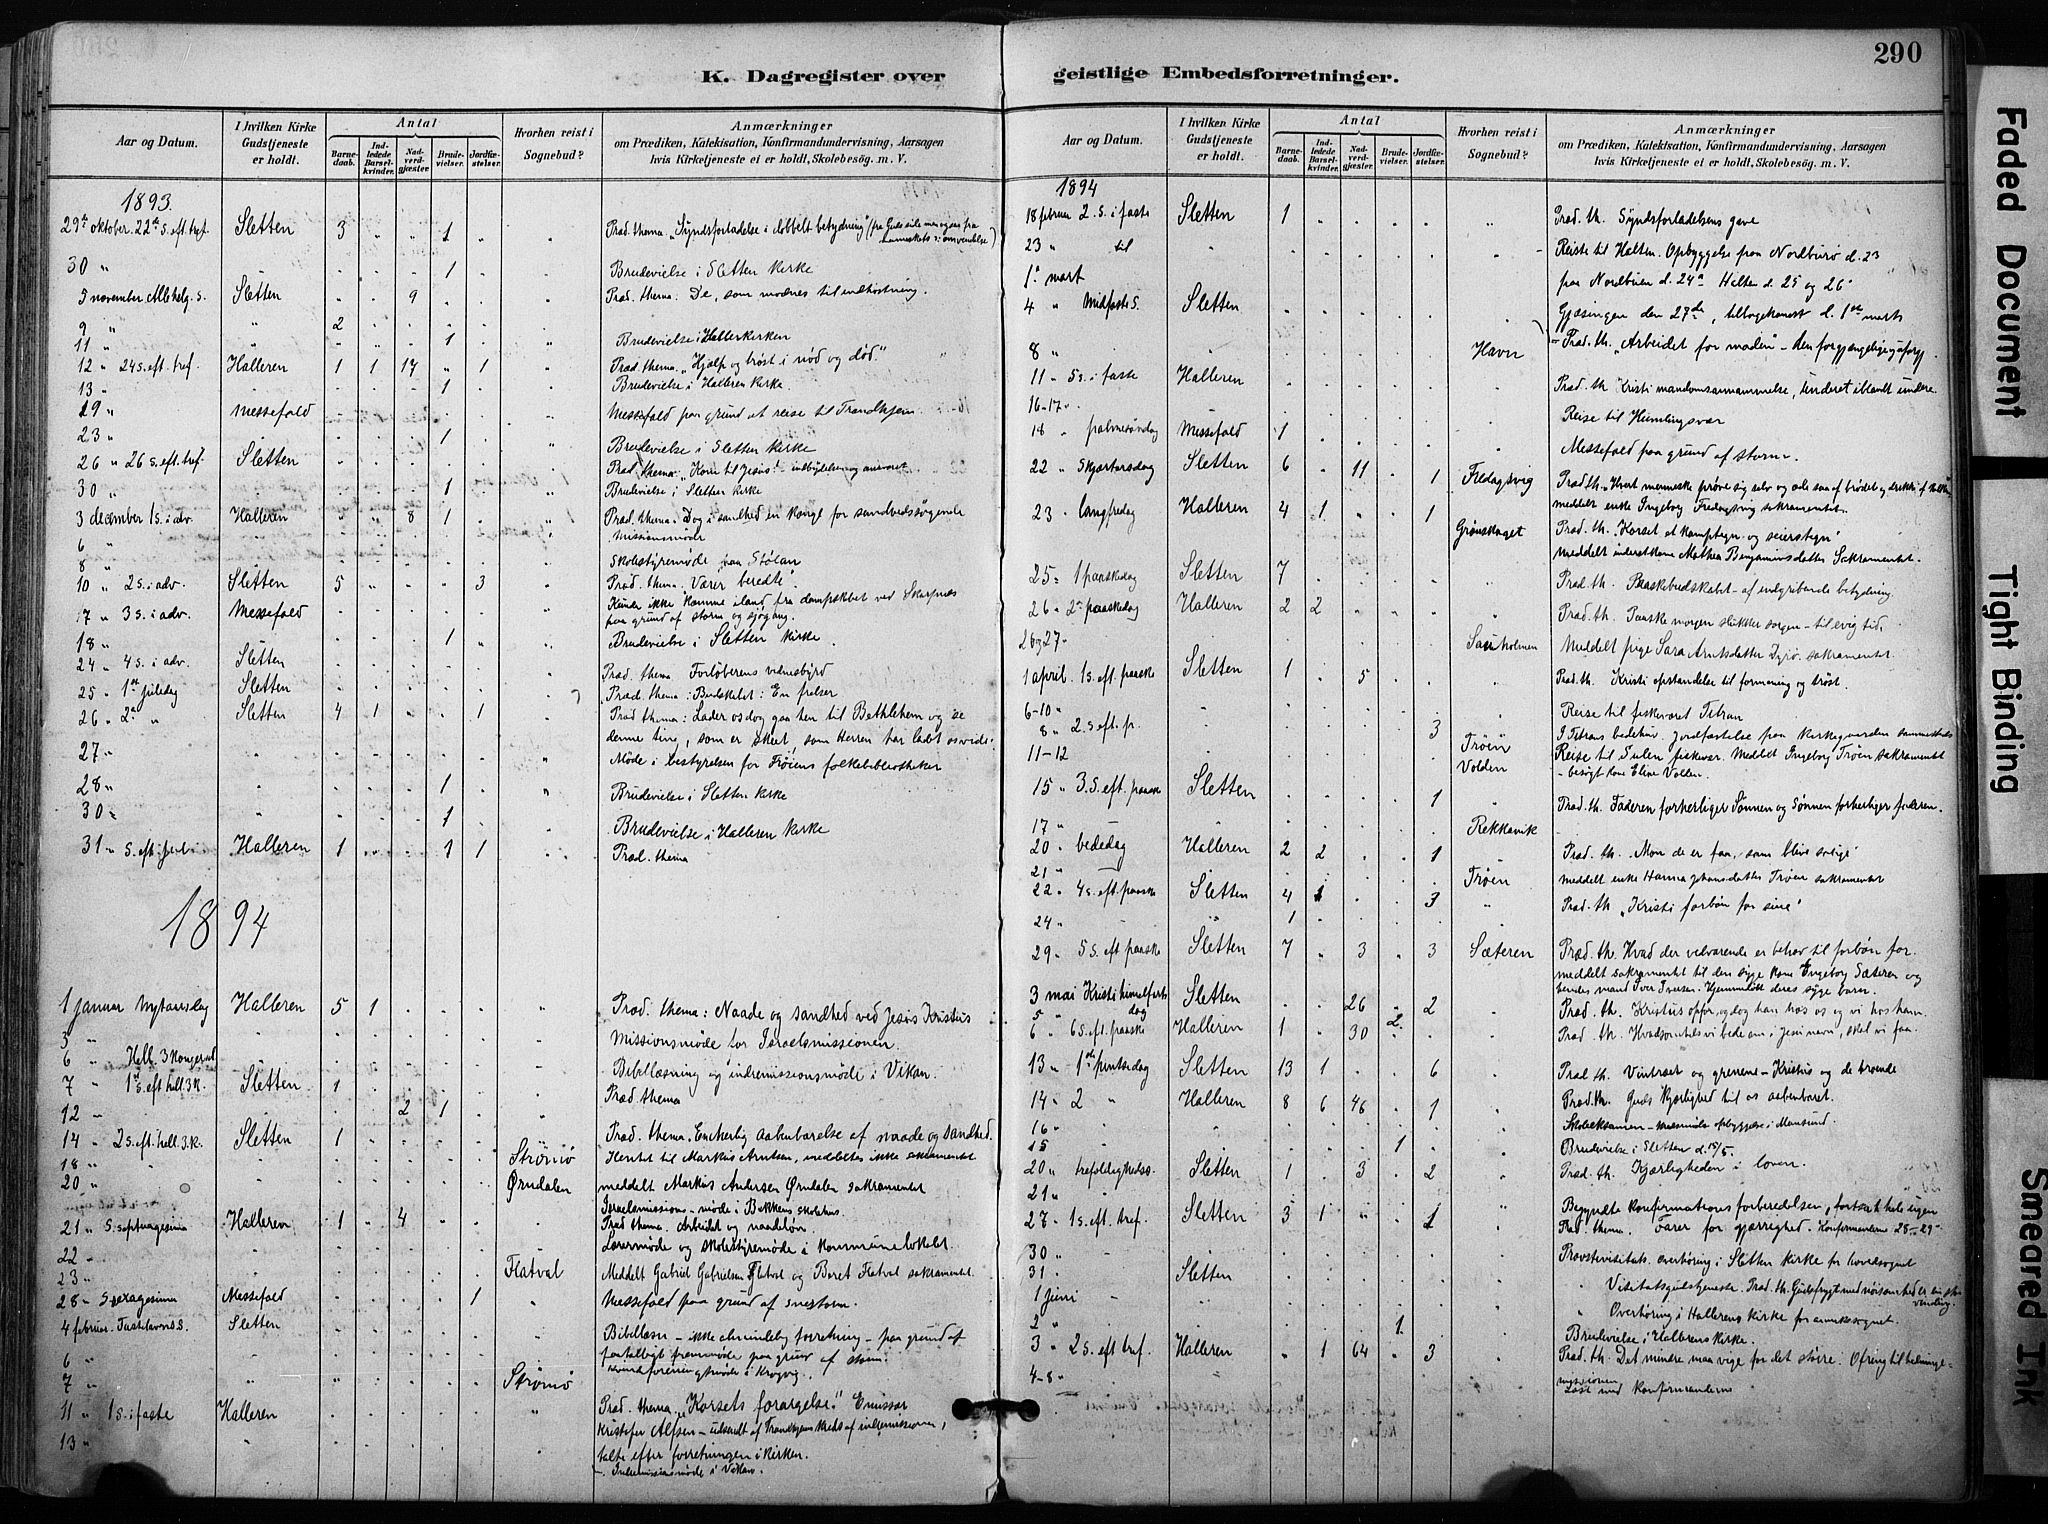 290
K. Dagregister over geistlige Embedsforretninger.
Aar og Datum.
I hvilken Kirke Gudstjeneste er holdt.
Antal
Barnedaab.
Indledede Barselkvinder.
Nadverdgjæster.
Brudevielser.
Jordfæstelser.
Hvorhen reist i Sognebud?
Anmærkninger
om Prædiken, Katekisation, Konfirmandundervisning, Aarsagen
hvis Kirketjeneste ei er holdt, Skolebesøg. m. V.
1893.
29de oktober. 22de s. eft. tref. Sletten 3 . . 1 . . Præd. thema „Syndsforladelse i dobbelt betydning (fra Guds side men ogsaa fra
menneskets s: omvendelse)
30 " . . . 1 . . Brudevielse i Sletten kirke
5 november Allehelg. s. Sletten . . 9 . . . Præd. thema. De, som modnes til indhøstning.
9 " " 2
11 " . . . 1 . Brudevielse i Hallerkirken
12 " 24 s. eft. tref. Halleren 1 1 17 . 1 Præd. thema. „Hjælp og trøst i nød og død."
13 " . . . 1 . Brudevielse i Halleren kirke.
19 " Messefald Messefald paa grund af reise til Trondhjem.
23 " . . . 1 . Brudevielse i Sletten kirke
26 " 26 s. eft. tref. Sletten Præd. thema: „Kom til Jesus!" indbydelse og ansvaret
30 " . . . 1 . Brudevielse i Sletten kirke
3 december 1 s. i adv. Halleren . . 8 1 . Præd. thema. Dog i sandhed en konge for sandhedssøgende
6 " Missionsmøde
8 " Skolestyremøde paa Stølan
10 " 2 s. i adv. Sletten 5 . . . 3 Præd. thema. Værer beredte".
17 " 3 s. i adv. Messefald Kunde ikke komme iland fra dampskibet ved Skarpnes
paa grund af storm og sjøgang.
18 " . . . 1 . Brudevielse i Sletten kirke.
24 " 4 s. i adv. Sletten Præd. thema Forløberens vidnesbyrd
25 " 1ste juledag Sletten Præd. thema: Budskabet: En frelser
26 " 2den " Sletten 4 1 . . 1 Præd thema: Lader os dog gaa hen til Bethlehem og se
denne ting, som er skeet, som Herren har ladet os vide.
27 " Møde i bestyrelsen for Frøiens folkebibliotheker
28 " . . . 1 . Brudevielse i Sletten kirke
30 " . . . 1 . Brudevielse i Halleren kirke
31 " S. eft. jul Halleren 1 . . 1 1 Præd. thema
1894
1 januar Nytaarsdag Halleren 5 1 Præd. thema: Naade og sandhed ved Jesus Kristus
5 " Missionsmøde for Israelsmissionen.
6 " Hell. 3 konger Bibellæsning og indremissionsmøde i Vikan.
7 " 1ste s. eft. hell. 3 K. Sletten 1 Præd. thema
12 " . . 2 1
14 " 2 s. eft. hell. 3. K. Sletten 1 Præd. thema. Enkerlig aabenbarelse af naade og sandhed.
18 " Strømø Hentet til Markus Arntsen, meddeltes ikke sakramentet
20 " Ørndalen meddelt Markus Andersen Ørndalen sakramentet
Israelsmissions-møde i Bekkens skolehus.
21 " S. septuagesima Halleren 1 . 4 Præd thema. Arbeidet og naadeløn.
22 " Lærermøde og skolestyremøde i kommunelokalet.
23 " Flatval Meddelt Gabriel Gabrielsen Flatval og Beret Flatval sakramentet.
28 " S sexagesima Messefald . . . . 1 Messefald paa grund af snestorm.
4 februar. Fastelavns S. Sletten Bibellæsn – ikke almindelig forretning – paa grund af
faatalligt fremmøde paa grund af storm.
6 " kvindeforeningsmøde i Krogvig.
7 " Strømø
11 " 1 s. i faste Halleren Præd. thema „Korsets forargelse". Emissær
Kristofer Alfsen – udsendt af Trondhjems kreds af indremissionen,
13 " talte efter forretningen i kirken.
– Indremissionsmøde i Vikan.
Aar og Datum.
I hvilken Kirke Gudstjeneste er holdt.
Antal
Barnedaab.
Indledede Barselkvinder.
Nadverdgjæster.
Brudevielser.
Jordfæstelser.
Hvorhen reist i Sognebud?
Anmærkninger
om Prædiken, Katekisation, Konfirmandundervisning, Aarsagen
hvis Kirketjeneste ei er holdt, Skolebesøg. m. V.
1894
18 februar 2. S. i faste Sletten 1 Præd. th. Syndsforladelsens gave
23 " til Reiste til Halten. Opbyggelse paa Nordburø d. 23
1ste mart paa Nordbuen d. 24de Halten d. 25 og 26de
4 " Midfaste S. Sletten Gjæsingen den 27de, tilbagekomst d. 1ste marts
Præd. th. „Arbeidet for maden" – den forgjængelige, uforgj.
8 " Havn
11 " 5 s. i faste Halleren Præd. th Kristi mandomsannammelse, underet iblandt undere.
16–17 " Reise til Humlingsvær
18 " palmesøndag Messefald 1 Messefald paa grund af storm.
22 " Skjærtorsdag Sletten 6 . 11 . 1 Fredagsvig Præd th. „Hvert menneske prøve sig selv og æde saa af brødet og drikke af kalken
meddelt enke Ingeborg Fredagsvig sakramentet.
23 " langfredag Halleren 4 1 . . 1 Grønskaget Præd. th. „Korset et kamptegn og seierstegn"
meddelt inderstkone Mathea Benjaminsdatter Sakramentet.
25 " 1 paaskedag Sletten 7 Præd. th. Paaskebudskabet – af indgribende betydning.
26 " 2den paaskedag Halleren 2 2 Præd. th. Paaskemorgen slukker sorgen – til evig tid.
26 og 27 " Sauholmen Meddelt pige Sara Arntsdatter Dyrø sakramentet
1 april. 1 s. eft. paaske Sletten 1 . 5 Præd. th. Kristi opstandelse til formaning og trøst.
6–10 " Reise til fiskeværet Titran
8 " 2. s eft. p. 3 I Titrans bedehus. Jordfæstelse paa kirkegaarden sammesteds
11–12 Trøen Reise til Sulen fiskevær. Meddelt Ingeborg Trøen sakramentet
Volden – besøgt kone Eline Volden.
15 " 3. S. eft. paaske Sletten 1 Præd. th. Faderen forherliger Sønnen og Sønnen forherliger faderen.
17 " Rekkavik
20 " bededag Halleren 2 2 . . 1 Præd. th. „Mon de er faa, som blive salige"
21 " Trøen meddelt enke Hanna Johansdatter Trøen sakramentet
22 " 4 s. eft. paaske Sletten 4 1 . . 3 Præd. th „Kristi forbøn for sine"
24 " 1
29 " 5 S. eft paaske Sletten 7 . 3 . 3 Sæteren Præd. th. Hvad der vedvarende er behov til forbøn for.
meddelt sakramentet til den syge kone Ingeborg Sæteren og
hendes mand Iver Iversen. Hjemmedøbt deres syge barn.
3 mai Kristi himmelfartsdag Sletten . . 26 . 2 Præd. th. Kristus opfor, og dog han hos os og vi hos ham.
5 " . . . 2
6 " 6 s. eft. paaske Halleren 1 . 30 Præd. th. Hvadsomhelst vi bede om i Jesu navn, skal vi faa.
13 " 1ste pintsedag Sletten 13 1 . . 6 Præd th. Vintræet og grenene – Kristus og de troende
14 " 2 " Halleren 8 6 46 . 1 Præd. th. Guds kjærlighed til os aabenbaret.
16 " Skoleeksamen – opbyggelse i Mausund.
15 " . . . 1 Brudevielse i Sletten d. 15/5.
20 " trefoldighedss. Sletten 1 . 3 . 2 Præd. th. Kjærligheden i loven.
21 " Begyndte konfirmationsforberedelsen, fortsat hele ugen
27 " 1 s. eft. tref. Sletten 3 1 . . 1 Præd. thema. Farer for gjærrighed. Konfirmanderne 28–29de
30 " Provstevisitats. overhøring i Sletten kirke for hovedsognet
31 " Sletten Visitatsgudstjeneste. Præd. th. Gudsfrygt med nøisomhed er en stor
vinding.
1 juni " Overhøring i Hallerens kirke for annekssognet.
2 " . . . 1 Brudevielse i Hallerens kirke.
3 " 2 s. eft tref. Halleren . 1 64 . 3 Præd. th. Det mindre maa vige for det større. Ofring til hedninge-
missionen
4–8 " Læst med konfirmanderne
Faded Document
Tight Binding
Smeared Ink